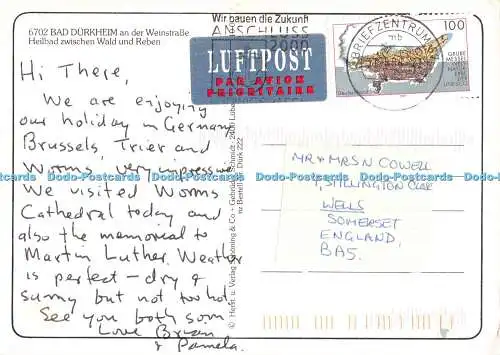 6702 BAD DÜRKHEIM an der Weinstraße
Heilbad zwischen Wald und Reben
Hi There,
We are enjoying
our holiday in Germany
Brussels, Trier and
Worms, very impressive
We visited Worms
Cathedral today and
also the memorial to
Martin Luther. Weather
is perfect - dry &
sunny but not too hot
See you both soon
Love Brian
& Pamela.
Wir bauen die Zukunft
ANSCHLUSS
2000
LUFTPOST
PAR AVION
PRIORITAIRE
BRIEFZENTRUM
100
GRUBE
MESSEL
MR & MRS N COWELL
1, STILLINGTON
WELLS
SOMERSET
ENGLAND,
BA5.
© Herst. u. Verlag Schöning & Co + Gebrüder Schmidt
Dodo-Postcards Dodo-Postcards Dodo-Postcards Dodo-Postcards